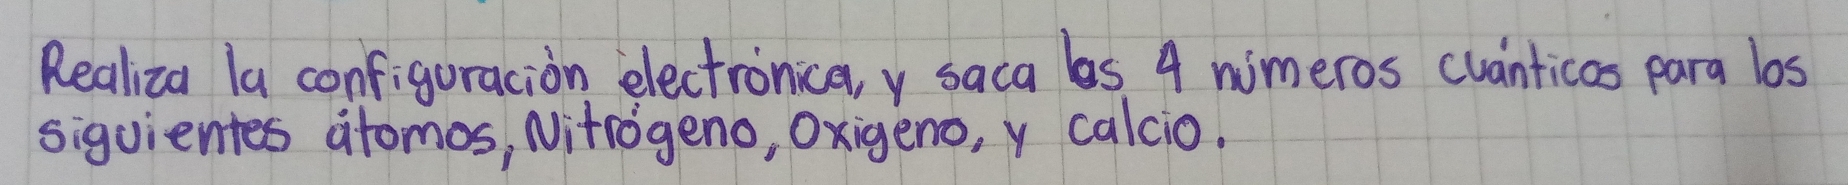 Realiza la configuración electrónica, y saca los 4 números cuánticos para los
siguientes átomos, Nitrógeno, Oxigeno, y calcio.